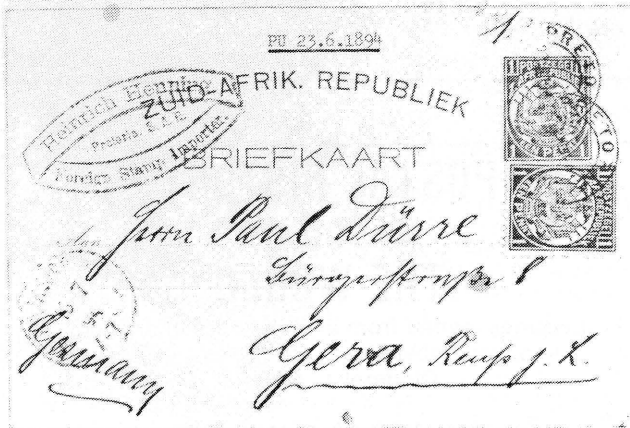 PU 23.6.1894
ZUID-AFRIK. REPUBLIEK
BRIEFKAART
Heinrich Henning.
Pretoria, Z.A.R.
Foreign Stamp Importer.
PRETO
PRETO
Aan
Herrn Paul Dürre
Bürgerstraße 8
Gera, Reuß j. L.
Germany